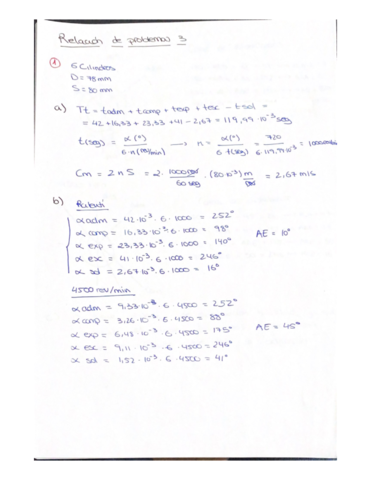 Relación de problemas 3
① 6 Cilindros
D = 78mm
S = 80 mm
a) Tt = tadm + tcomp + texp + tesc - tsol =
= 42 + 16,33 + 23,33 + 41 - 2,67 = 119,99·10⁻³ seg
t(seg) = α(°) / 6·n(rev/min) → n = α(°) / 6·t(seg) = 720 / 6·119,99·10⁻³ = 1000
Cm = 2 n S = 2 · 1000 rev / 60 seg · (80·10⁻³) m / rev = 2,67 m/s
b) Ralentí
α adm = 42·10⁻³·6·1000 = 252°
α comp = 16,33·10⁻³·6·1000 = 98°
α exp = 23,33·10⁻³·6·1000 = 140° AE = 10°
α esc = 41·10⁻³·6·1000 = 246°
α sol = 2,67·10⁻³·6·1000 = 16°
4500 rev/min
α adm = 9,33·10⁻³·6·4500 = 252°
α comp = 3,26·10⁻³·6·4500 = 88°
α exp = 6,47·10⁻³·6·4500 = 175° AE = 45°
α esc = 9,11·10⁻³·6·4500 = 246°
α sol = 1,52·10⁻³·6·4500 = 41°